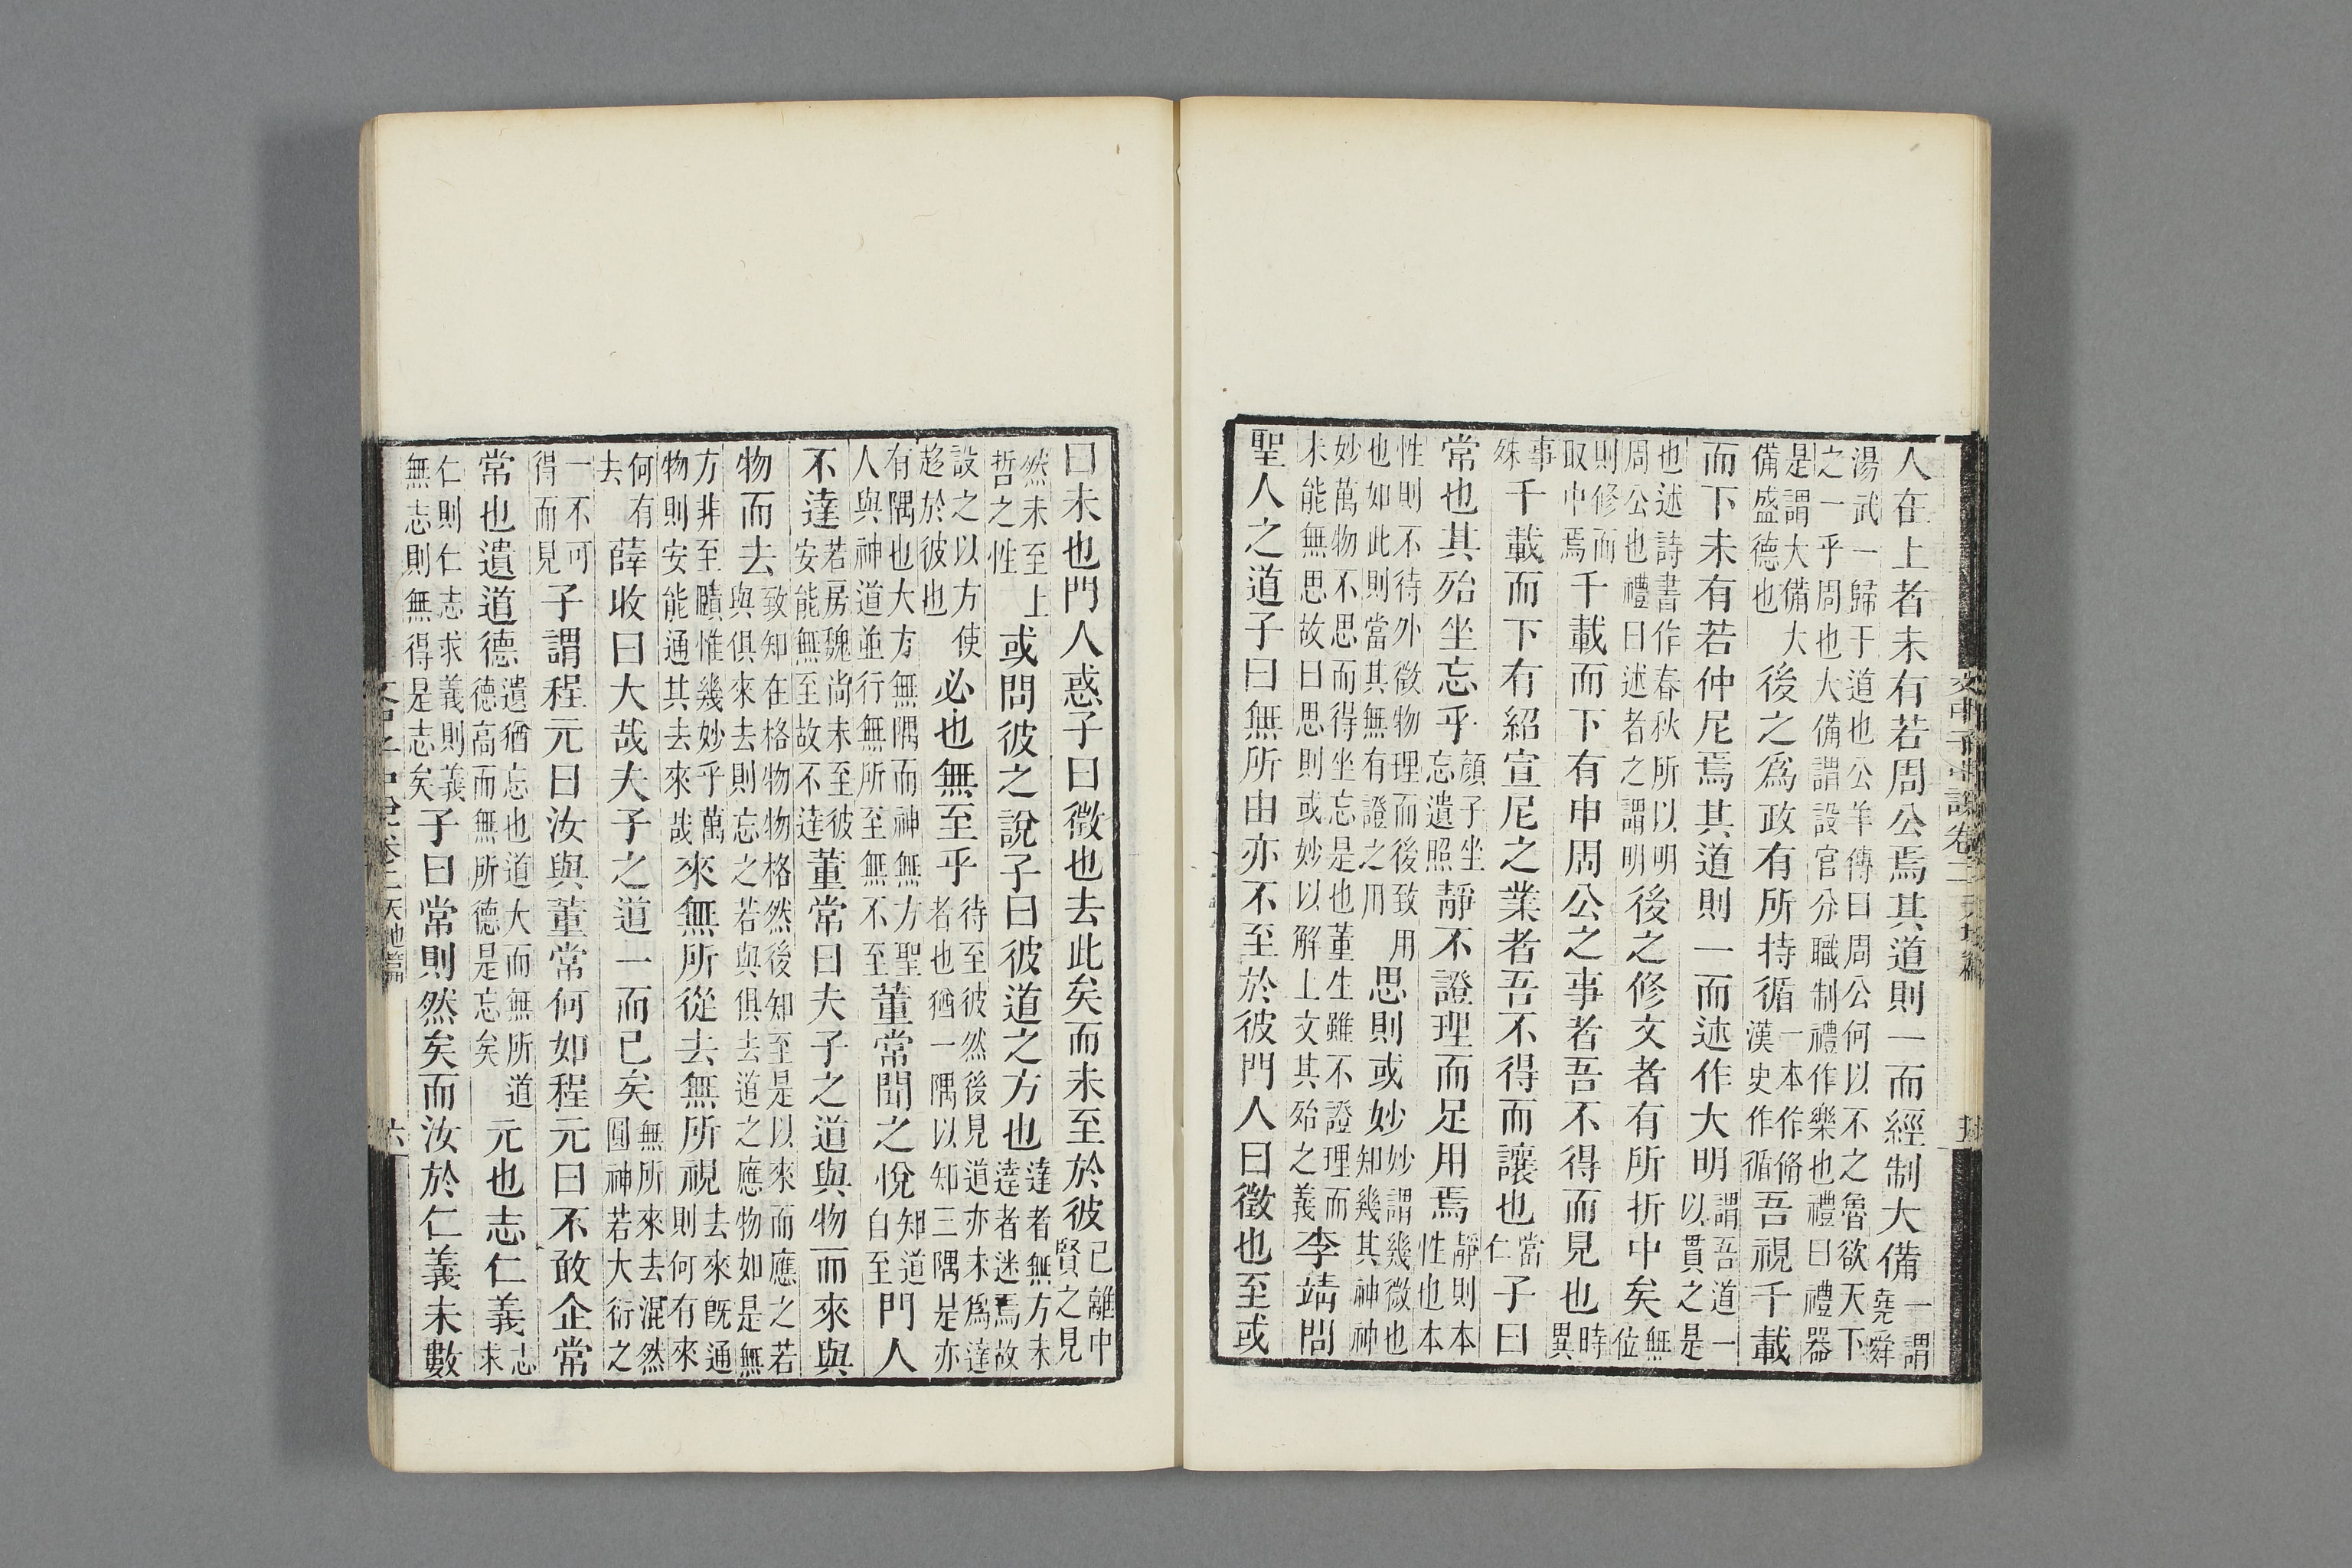 人在上者未有若周公焉其道則一而經制大備一謂堯舜
湯武一歸于道也公羊傳曰周公何以不之魯欲天下
之一乎周也大備謂設官分職制禮作樂也禮曰禮器
是謂大備大備盛德也後之爲政有所持循一本作脩漢史作循吾視千載
而下未有若仲尼焉其道則一而述作大明謂吾道一以貫之是
也述詩書作春秋所以明周公也禮曰述者之謂明後之修文者有所折中矣無位
則修而取中焉千載而下有申周公之事者吾不得而見也時異
事殊千載而下有紹宣尼之業者吾不得而讓也當仁子曰
常也其殆坐忘乎顏子坐忘遺照靜不證理而足用焉靜則本性也本
性則不待外徵物理而後致用也如此則當其無有證之用思則或妙妙謂幾微也知幾其神神
妙萬物不思而得坐忘是也董生雖不證理而未能無思故曰思則或妙以解上文其殆之義李靖問
聖人之道子曰無所由亦不至於彼門人曰徵也至或
曰未也門人惑子曰徵也去此矣而未至於彼已離中賢之見
然未至上哲之性或問彼之說子曰彼道之方也達者無方未達者迷焉故
設之以方使趍於彼也必也無至乎待至彼然後見道亦未爲達者也猶一隅以知三隅是亦
有隅也大方無隅而神無方聖人與神道並行無所至無不至董常聞之悅知道自至門人
不達若房魏尚未至彼安能無至故不達董常曰夫子之道與物而來與
物而去致知在格物物格然後知至是以來而應之若與俱來去則忘之若與俱去道之應物如是無
方非至賾惟幾妙乎萬物則安能通其去來哉來無所從去無所視去來既通則何有來
何有去薛收曰大哉夫子之道一而已矣無所來去混然圓神若大衍之
一不可得而見子謂程元曰汝與董常何如程元曰不敢企常
常也遺道德遺猶忘也道大而無所道德高而無所德是忘矣元也志仁義志求
仁則仁志求義則義無志則無得是志矣子曰常則然矣而汝於仁義未數
文中子中說卷二天地篇
六